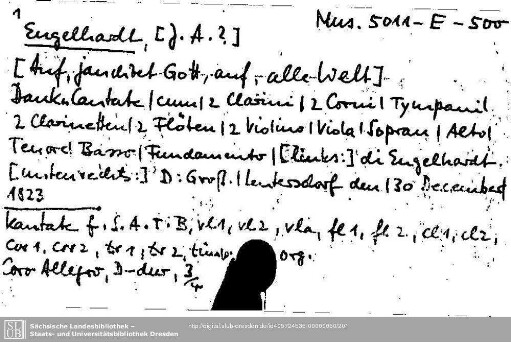 1
Mus. 5011-E-500
Engelhardt, [J. A.?]
[Auf, jauchzet Gott, auf, alle Welt]
Dank Cantate | cum | 2 Clarini | 2 Corni | Tympani |
2 Clarinetten | 2 Flöten | 2 Violino | Viola | Sopran | Alto |
Tenore | Basso | Fundamento | [links:] di Engelhardt.
[unten rechts:] D: Groß. | Leutersdorf den | 30 December
1823
Kantate f. S. A. T. B, vl 1, vl 2, vla, fl 1, fl 2, cl 1, cl 2,
cor 1, cor 2, tr 1, tr 2, timp. org.
Coro Allegro, D-dur, 3/4
SLUB
Sächsische Landesbibliothek –
Staats- und Universitätsbibliothek Dresden